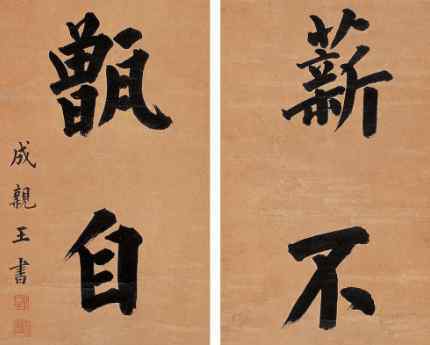 薪不
甑自
成親王書